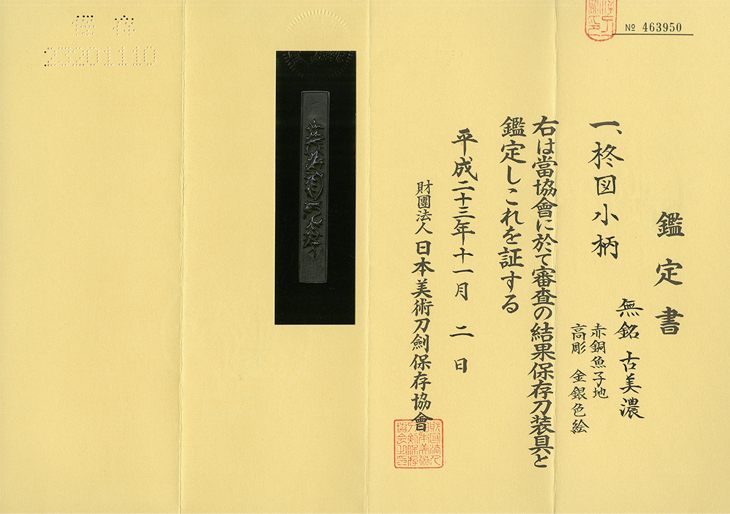 № 463950
鑑定書
一、柊図小柄
無銘 古美濃
赤銅魚子地
高彫 金銀色絵
右は當協會に於て審査の結果保存刀装具と
鑑定しこれを証する
平成二十三年十一月 二 日
財團法人 日本美術刀劍保存協會